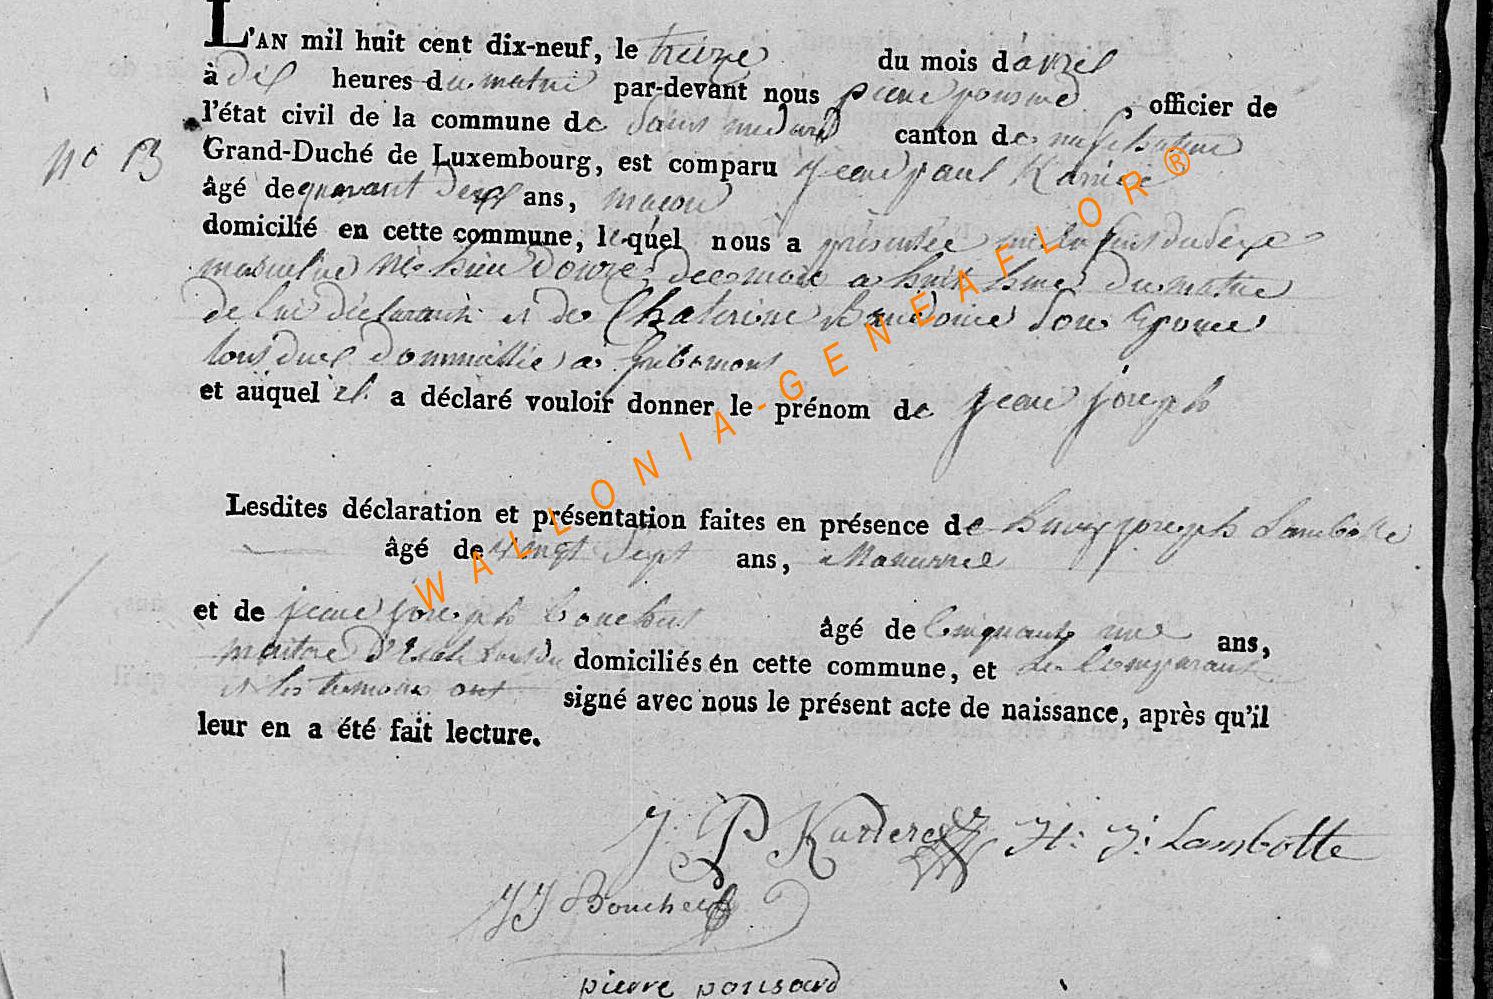 L'AN mil huit cent dix-neuf, le treize du mois d'avril
à dix heures du matin par-devant nous pierre ponsard, officier de
l'état civil de la commune de Saint medard canton de
Grand-Duché de Luxembourg, est comparu Jean paul
N° 13
âgé de quarant deux ans, maçon
domicilié en cette commune, lequel nous a présentée du sexe
masculin né hieu Douze dec mois a huit heures du matin
de lui déclarant et de Chaterine Son Epouse
tous deux Dommicilié a
et auquel il a déclaré vouloir donner le prénom de jean joseph
Lesdites déclaration et présentation faites en présence de henry joseph Lambotte
âgé de vingt Sept ans,
et de jean joseph âgé de Cinquante une ans,
domiciliés en cette commune, et Le Comparant
et les temoins ont signé avec nous le présent acte de naissance, après qu'il
leur en a été fait lecture.
J. P. H: J: Lambotte
JJ
pierre ponsard
WALLONIA-GENEAFLOR®